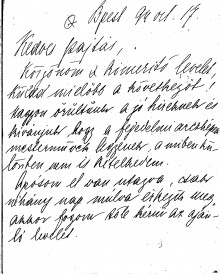 Bpest 94 oct. 17.
Kedves pajtás,
Köszönöm a kimerítő levelet,
küldd mielőbb a következőt!
Nagyon örültünk a jó híreknek és
kívánjuk, hogy a fejedelmi arcképek
mesterművek legyenek, a miben kü-
lönben nem is kételkedem.
Apósom el van utazva, csak
néhány nap múlva érkezik meg,
akkor fogom tőle kérni az aján-
ló levelet.